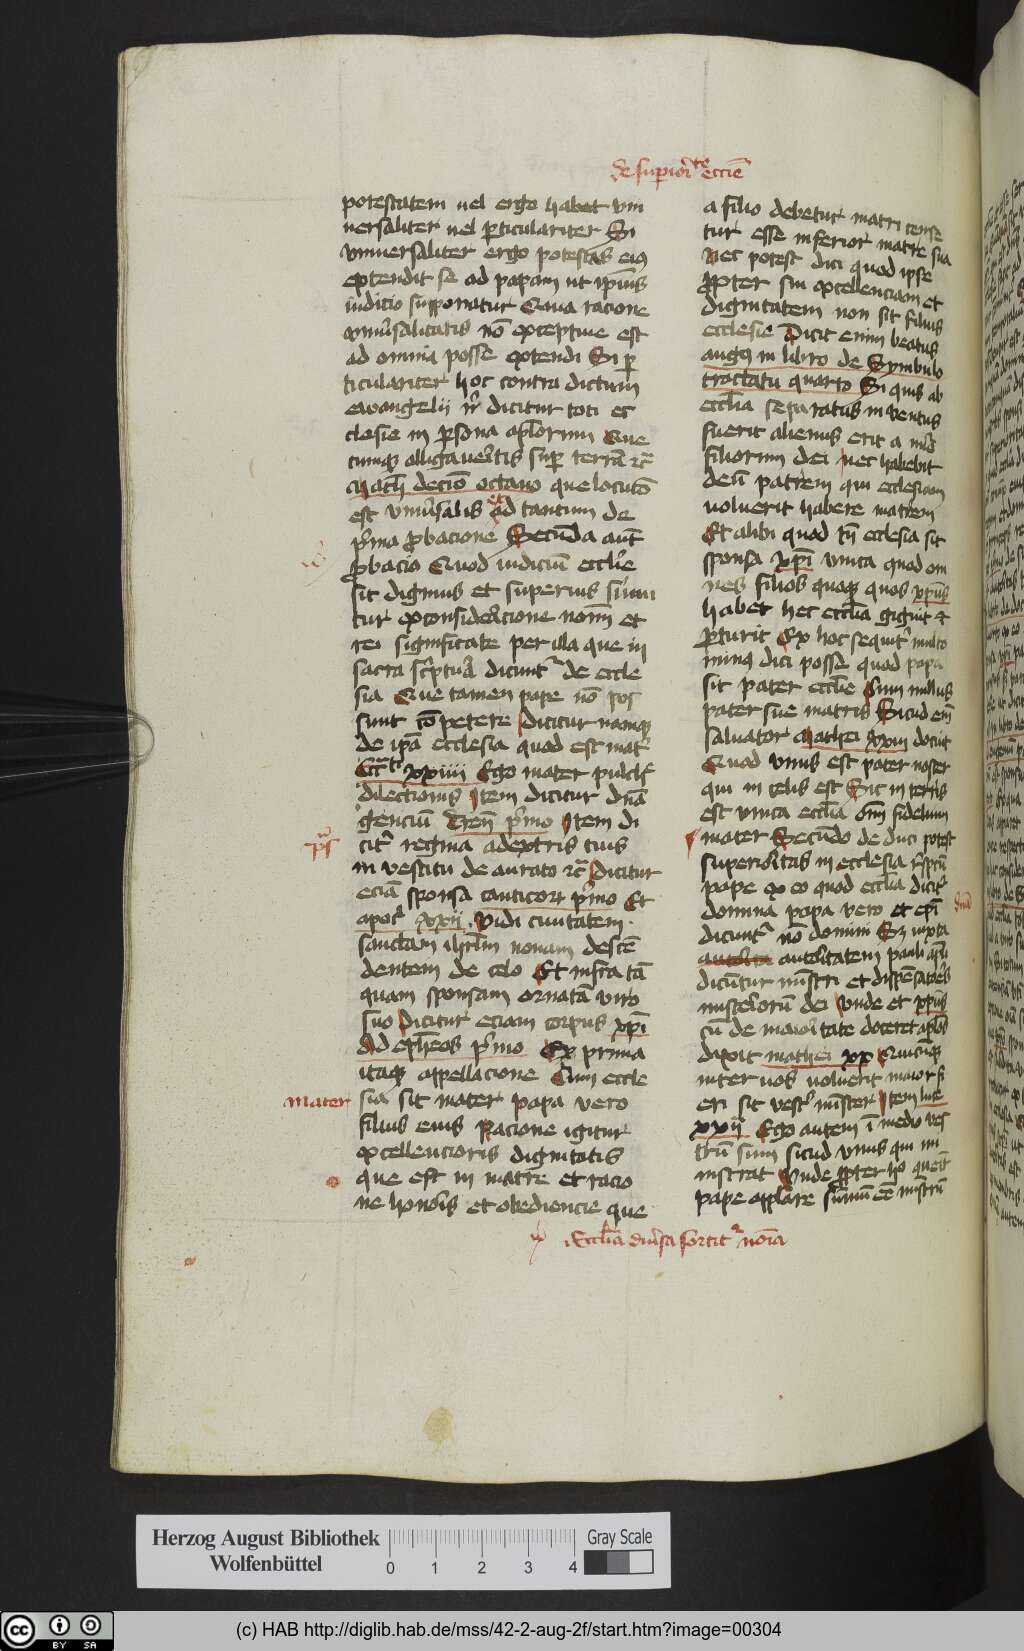 de superiorite eccie
potestatem uel ergo habet vni
uersaliter uel perticulariter Si
vniuersaliter ergo potestas eius
extendit se ad papam ut ipius
iudicio supponatur Quia racione
vniuersalitatis no exceptiue est
ad omnia posse extendi Si per
ticulariter hoc contra dictum
ewangelii vr dicitur toti ec
clesie in persona aplorum Que
cumque alligaueritis super terra rc
math decimo octauo que locutio
est vniuersalis et ad tantum de
prima probacione Secunda aut
probacio Quod iudiciu ecclie
sit dignius et superius sumi
tur ex consideracione nomi et
rei significate per illa que in
sacra scriptura dicuntur de eccle
sia Que tamen pape no pos
sunt competere Dicitur namque
de ipa ecclesia quod est mater
Ecci xxiiii Ego mater pulchre
dilectionis Item dicitur dna
genciu Tren primo Item di
citur regina adextris tuis
ps
in vestitu de aurato rc Dicitur
ecia sponsa canticor primo Et
apoc xxii Vidi ciuitatem
sanctam ihrlm nouam descen
dentem de celo Et infra tan
quam sponsam ornata viro
suo Dicitur eciam corpus xpi
Ad epheos primo Ex prima
itaque appellacione Cum eccle
mater
sia sit mater papa vero
filius eius Racione igitur
excellencioris dignitatis
que est in matre et racio
ne honoris et obediencie que
a filio debetur matri cense
tur esse inferior matre sua
Nec potest dici quod ipse
propter sui excellenciam et
dignitatem non sit filius
ecclesie Dicit enim beatus
augus in libro de Symbulo
tractatu quarto Si quis ab
ecclia separatus inuentus
fuerit alienus erit a nu
filiorum dei nec habebit
deum patrem qui ecclesiam
noluerit habere matrem
Et alibi quod tn ecclesia sit
sponsa xpi vnica quod om
nes filios quoque quos xpus
habet hec ecclia gignit et
perturit Ex hoc sequitur multo
minus dici posse quod papa
sit pater ecclie Cum nullus
pater sue matris Sicud em
saluator mathei xxiii docuit
Quod vnus est pater noster
qui in celis est Sic in terris
est vnica ecclia om fidelium
mater Secundo de duci potest
superioritas in ecclesia respectu
pape ex eo quod ecclia dicitur
domina papa vero et epi
dicuntur no domini Sz iuxta
auctoritatem pauli apli
dicuntur ministri et dispensatores
misteriorum dei Vnde et xpus
cum de maioritate doceret aplos
dixit mathei xx Quicunque
inter uos voluerit maior fi
eri sit vester minister Item luce
xxii Ego autem in medio ves
trum sum sicud vnus qui mi
nistrat Vnde propter hoc
pape appllare summum ee ministrum
Ecclia diuersa sortitur noia
Herzog August Bibliothek
Wolfenbüttel
0 1 2 3 4
Gray Scale
cc BY SA
(c) HAB http://diglib.hab.de/mss/42-2-aug-2f/start.htm?image=00304